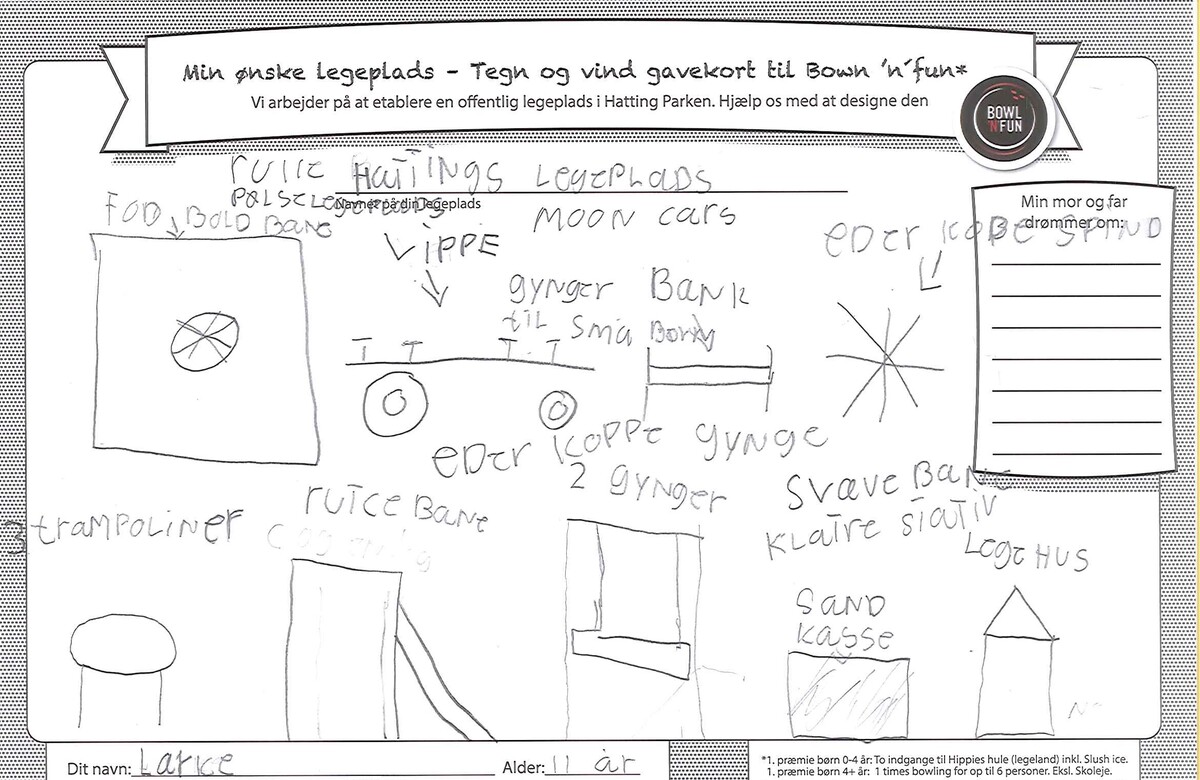 Min ønske legeplads - Tegn og vind gavekort til Bown 'n' fun*
Vi arbejder på at etablere en offentlig legeplads i Hatting Parken. Hjælp os med at designe den
BOWL
'N'FUN
HATTINGS LEGEPLADS
Navnet på din legeplads
FOD BOLD BANE
MOON cars
VIPPE
EDER KOBE SPIND
Min mor og far
drømmer om:
gynger BANK
til små Born
EDER KOPPE gynge
2 gynger
3 trAMPOLINER
rutce BANE
SVæVE BANE
KLATRE STATIV
Lege HUS
SAND
kasse
Dit navn: Lærke
Alder: 11 år
*1. præmie børn 0-4 år: To indgange til Hippies hule (legeland) inkl. Slush ice.
1. præmie børn 4+ år: 1 times bowling for op til 6 personer. Eksl. Skoleje.